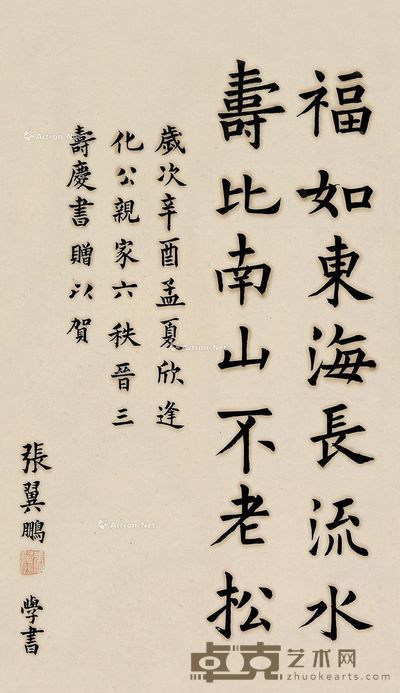 福如東海長流水
壽比南山不老松
歲次辛酉孟夏欣逢
化公親家六秩晉三
壽慶書贈以賀
張翼鵬
學書
Artron.Net
Artron.Net
Artron.Net
卓克艺术网
www.zhuokearts.com